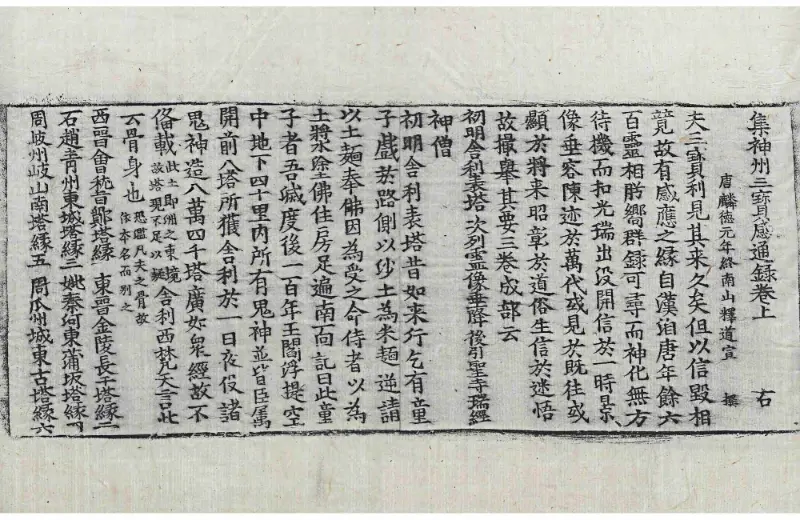 集神州三寶感通録卷上 右
唐麟德元年終南山釋道宣 撰
夫三寶利見其来久矣但以信毀相
競故有感應之緣自漢洎唐年餘六
百靈相肹嚮群錄可尋而神化無方
待機而扣光瑞出没開信於一時景
像垂容陳迹於萬代或見於既往或
顯於將来昭彰於道俗生信於迷悟
故撮舉其要三卷成部云
初明舍利表塔 次列靈像垂降 後引聖寺瑞經
神僧
初明舍利表塔昔如来行乞有童
子戲於路側以沙土為米麺逆請
以土麺奉佛因為受之命侍者以為
土漿塗佛住房足遍南面記曰此童
子者吾滅度後一百年王閻浮提空
中地下四十里内所有鬼神並皆臣屬
開前八塔所獲舍利於一日夜役諸
鬼神造八萬四千塔廣如眾經故不
俻載此土即洲之東境故塔現不足以疑舍利西梵天言此
云骨身也恐濫凡夫之骨故依本名而別之
西晉會稽鄮塔緣一 東晉金陵長干塔緣二
石趙青州東城塔緣三 姚秦河東蒲坂塔緣四
周岐州岐山南塔緣五 周瓜州城東古塔緣六